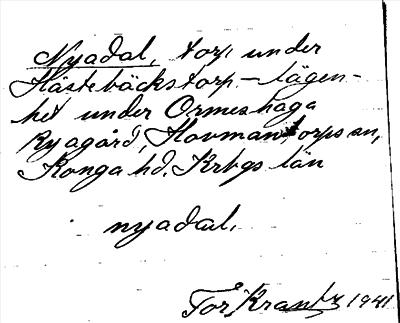 Nyadal, torp under
Hästebäckstorp – lägen-
het under Ormeshaga
Ryagård, Hovmantorps sn,
Konga hd. Krbgs län
nyadal.
Tor Krantz 1941